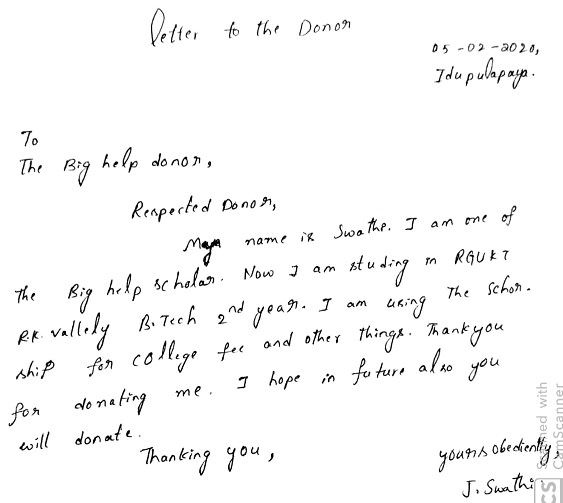 Letter to the Donor
05-02-2020,
Idupulapaya.
To
The Big help donor,
Respected Donor,
My name is Swathe. I am one of
the Big help scholar. Now I am studing in RGUKT
R.K. vallely B.Tech 2nd year. I am using The schor-
ship for college fee and other things. Thankyou
for donating me. I hope in future also you
will donate.
Thanking you,
yours obediently,
J. Swathi
CS
Scanned with
CamScanner